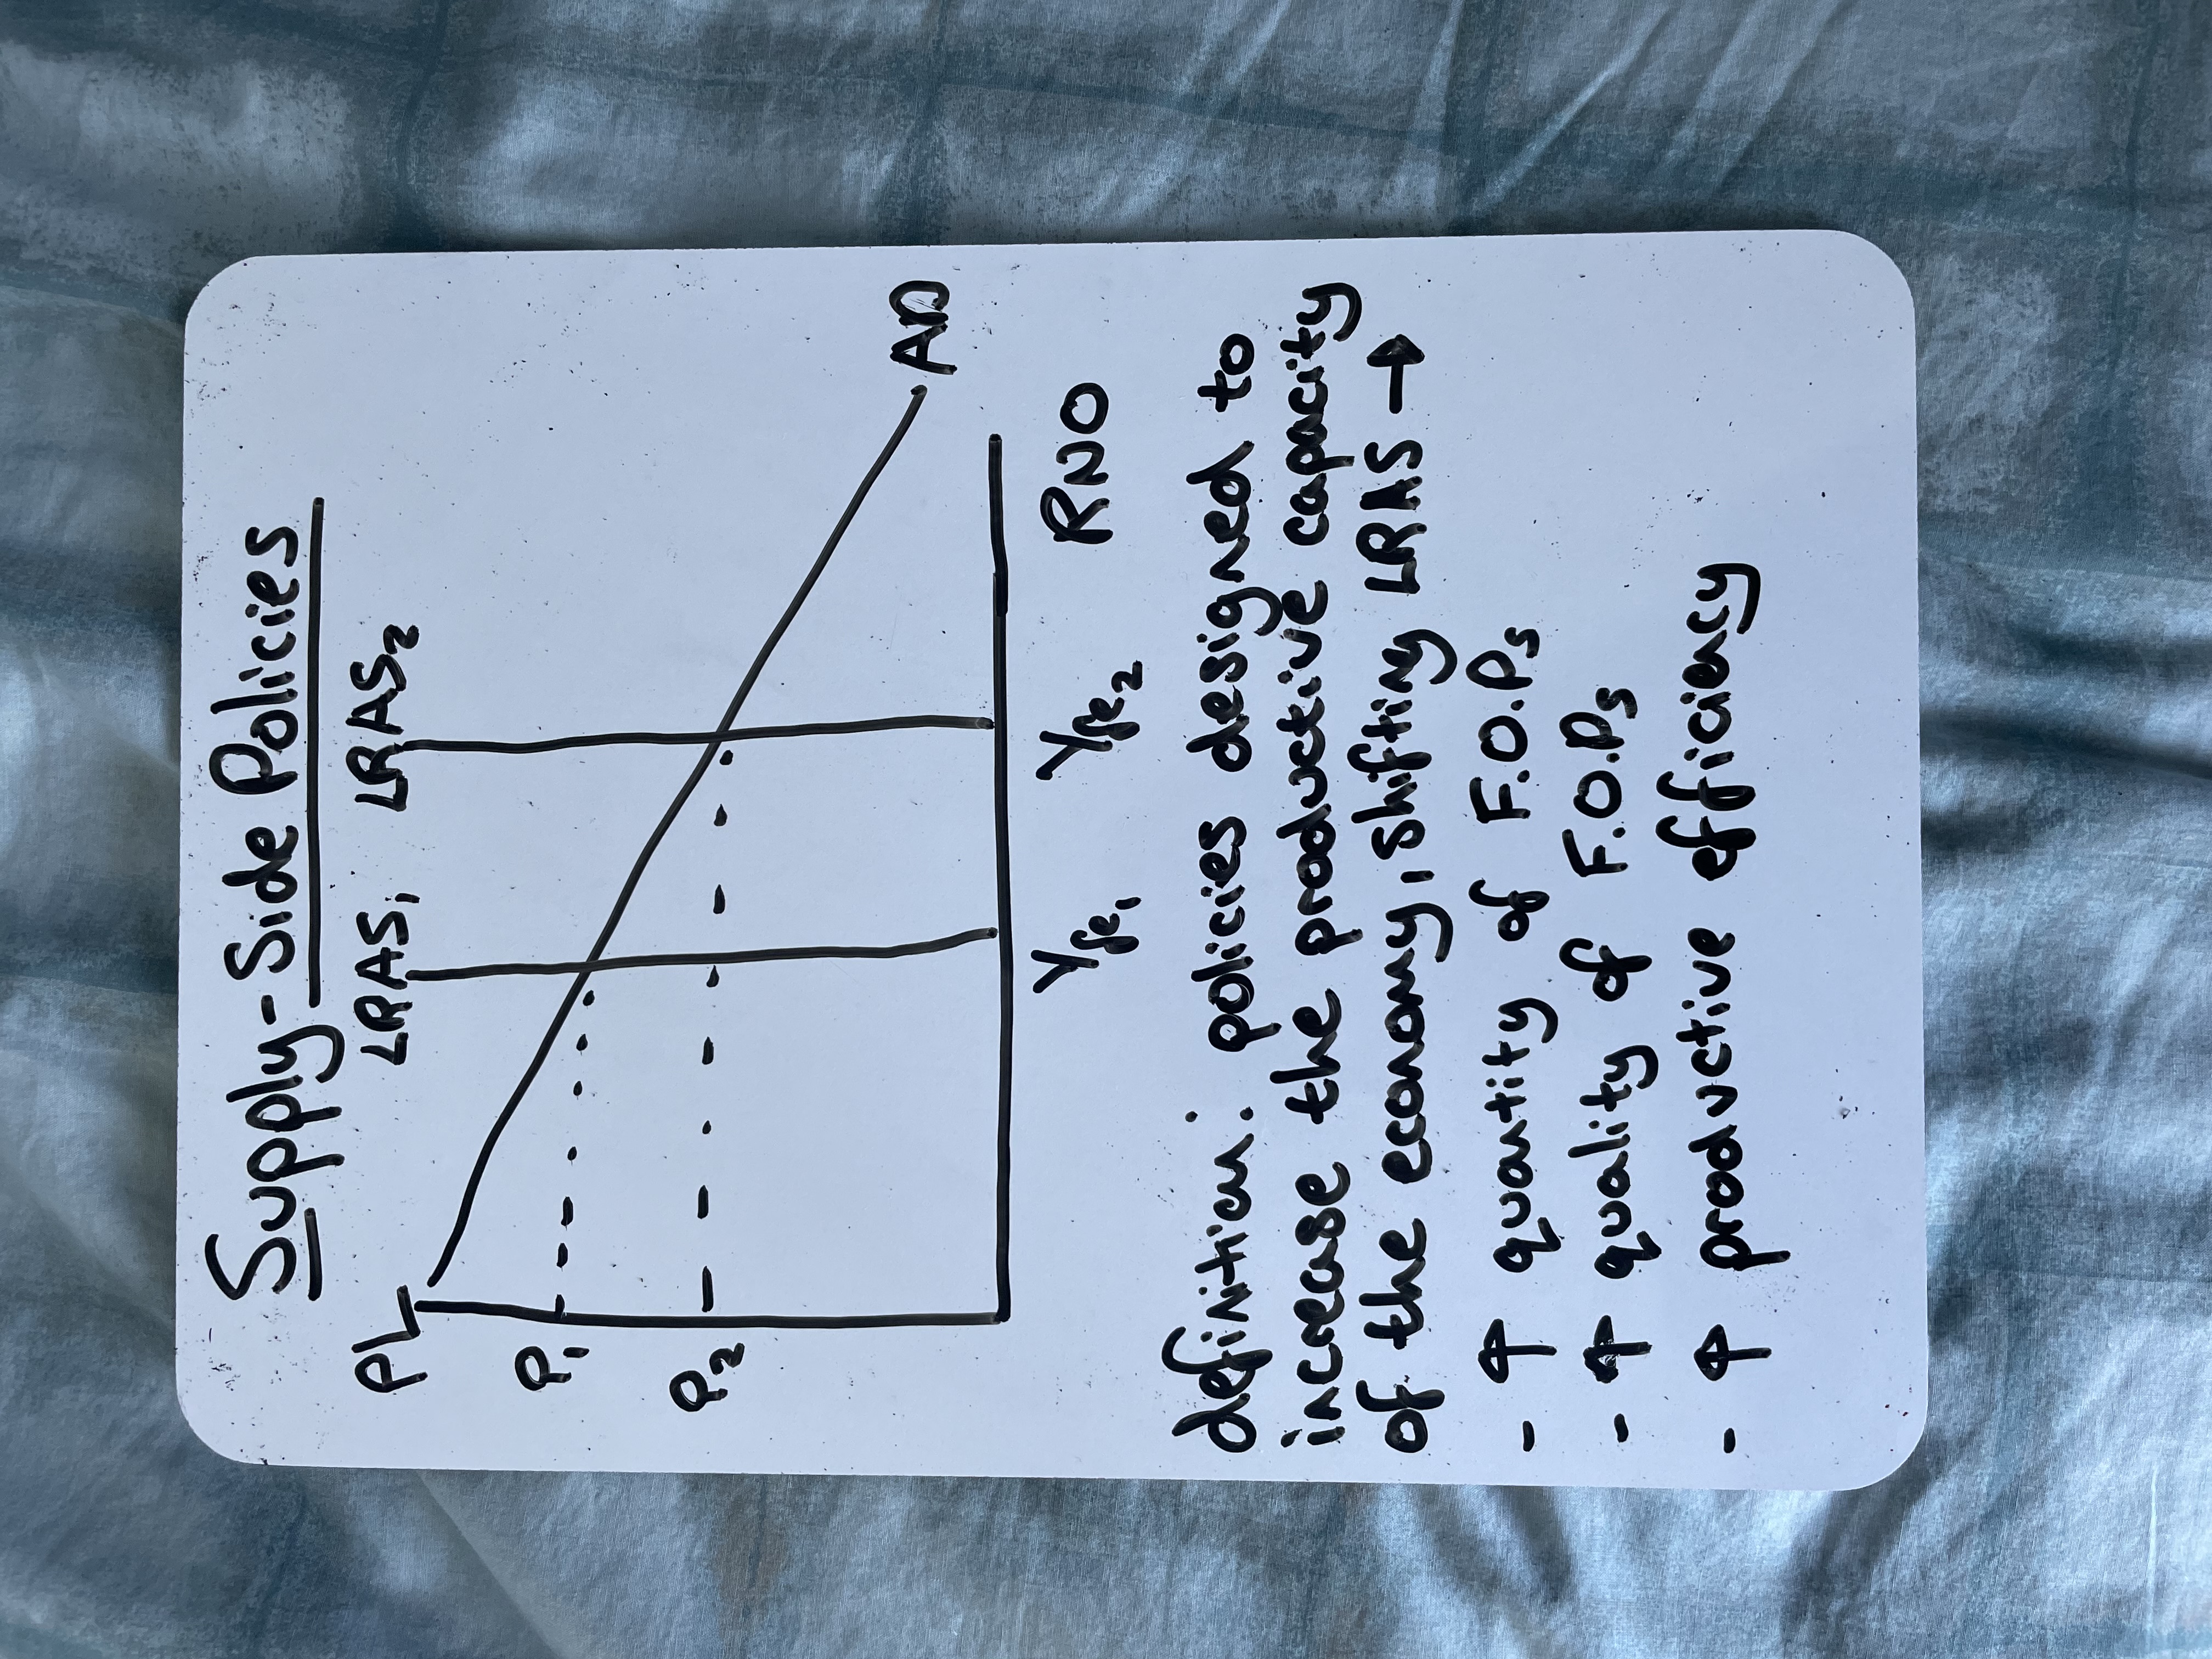 Supply-Side Policies
PL
LRAS₁ LRAS₂
P₁
P₂
AD
Yfe₁ Yfe₂ RNO
definition: policies designed to
increase the productive capacity
of the economy, shifting LRAS →
- ↑ quantity of F.O.Ps
- ↑ quality of F.O.Ps
- ↑ productive efficiency